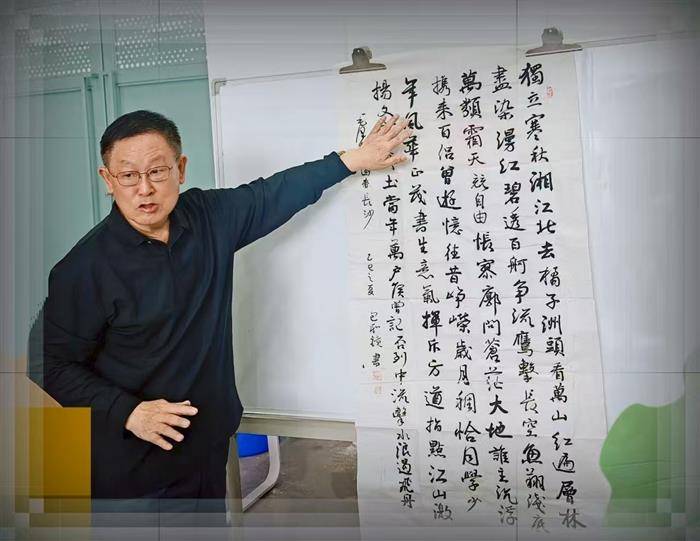 獨立寒秋湘江北去橘子洲頭看萬山紅遍層林
盡染漫紅碧透百舸争流鷹擊長空魚翔淺底
萬類霜天競自由悵寥廓問蒼茫大地誰主沉浮
携来百侣曾遊憶往昔崢嶸歲月稠恰同學少
年風華正茂書生意氣揮斥方遒指點江山激
揚文土當年萬户侯曾記否到中流擊水浪遏飛舟
毛春長沙 乙巳之夏 書